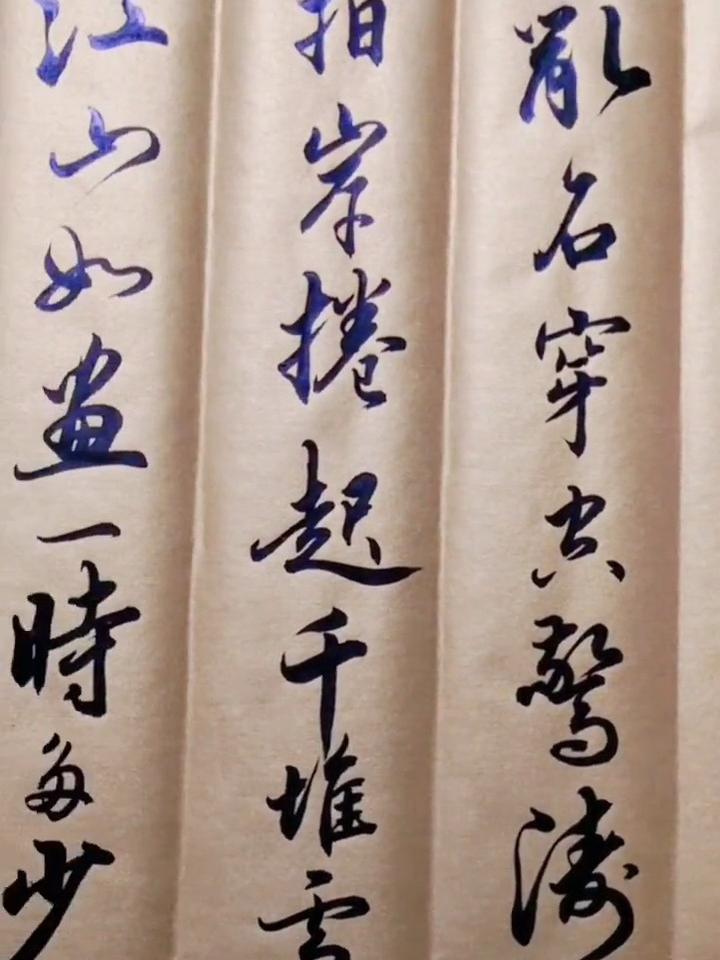 亂石穿空驚濤
拍岸捲起千堆雪
江山如畫一時多少